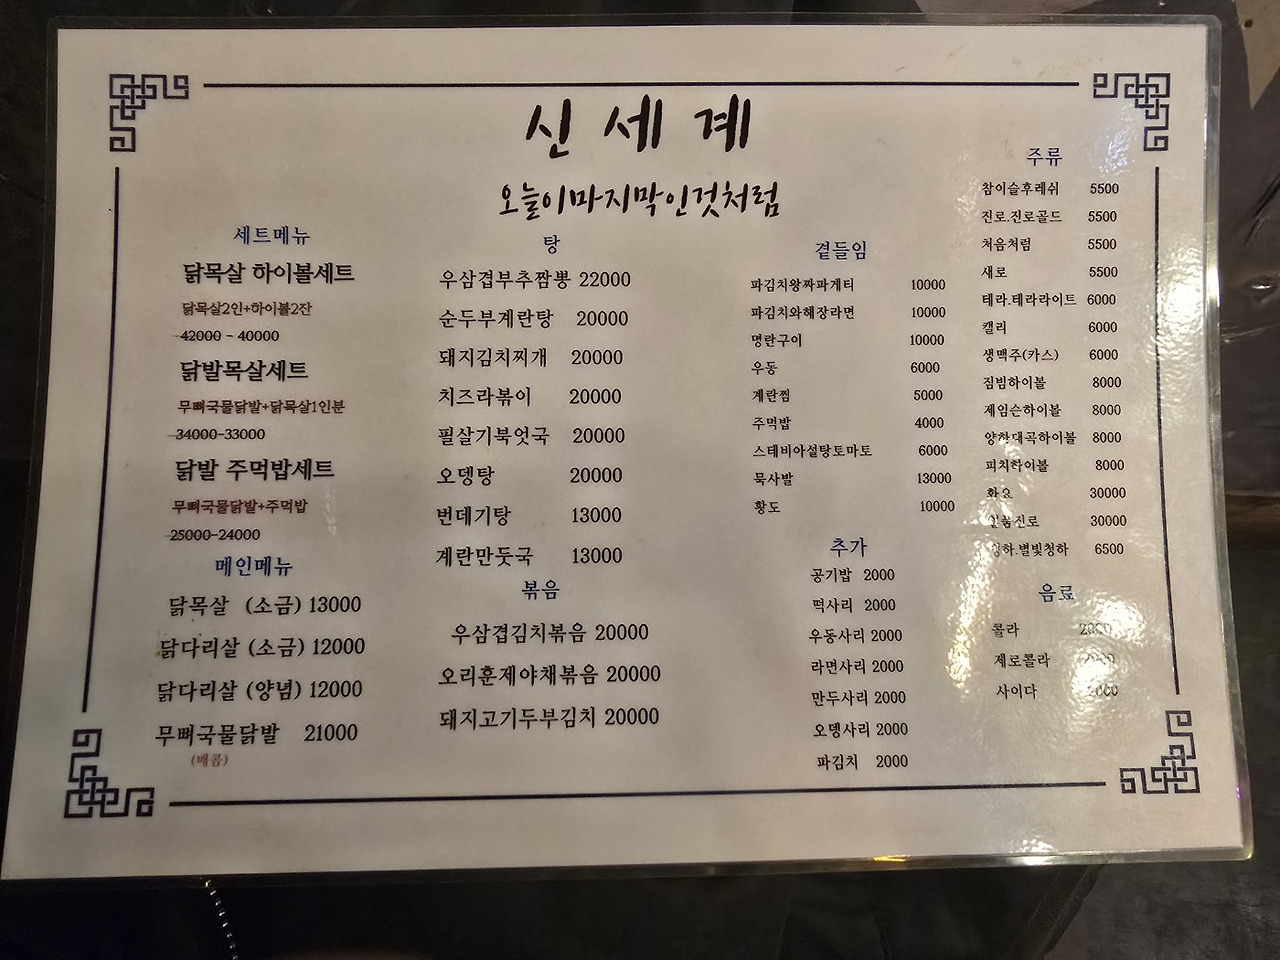 신세계
오늘이마지막인것처럼
세트메뉴
닭목살 하이볼세트
닭목살2인+하이볼2잔
42000 - 40000
닭발목살세트
무뼈국물닭발+닭목살1인분
34000-33000
닭발 주먹밥세트
무뼈국물닭발+주먹밥
25000-24000
메인메뉴
닭목살 (소금) 13000
닭다리살 (소금) 12000
닭다리살 (양념) 12000
무뼈국물닭발 21000
(매콤)
탕
우삼겹부추짬뽕 22000
순두부계란탕 20000
돼지김치찌개 20000
치즈라볶이 20000
필살기북엇국 20000
오뎅탕 20000
번데기탕 13000
계란만둣국 13000
볶음
우삼겹김치볶음 20000
오리훈제야채볶음 20000
돼지고기두부김치 20000
곁들임
파김치왕짜파게티 10000
파김치와해장라면 10000
명란구이 10000
우동 6000
계란찜 5000
주먹밥 4000
스테비아설탕토마토 6000
묵사발 13000
황도 10000
추가
공기밥 2000
떡사리 2000
우동사리 2000
라면사리 2000
만두사리 2000
오뎅사리 2000
파김치 2000
주류
참이슬후레쉬 5500
진로.진로골드 5500
처음처럼 5500
새로 5500
테라.테라라이트 6000
캘리 6000
생맥주(카스) 6000
짐빔하이볼 8000
제임슨하이볼 8000
얌한대곡하이볼 8000
피치하이볼 8000
화요 30000
일품진로 30000
청하.별빛청하 6500
음료
콜라 2000
제로콜라 2000
사이다 2000